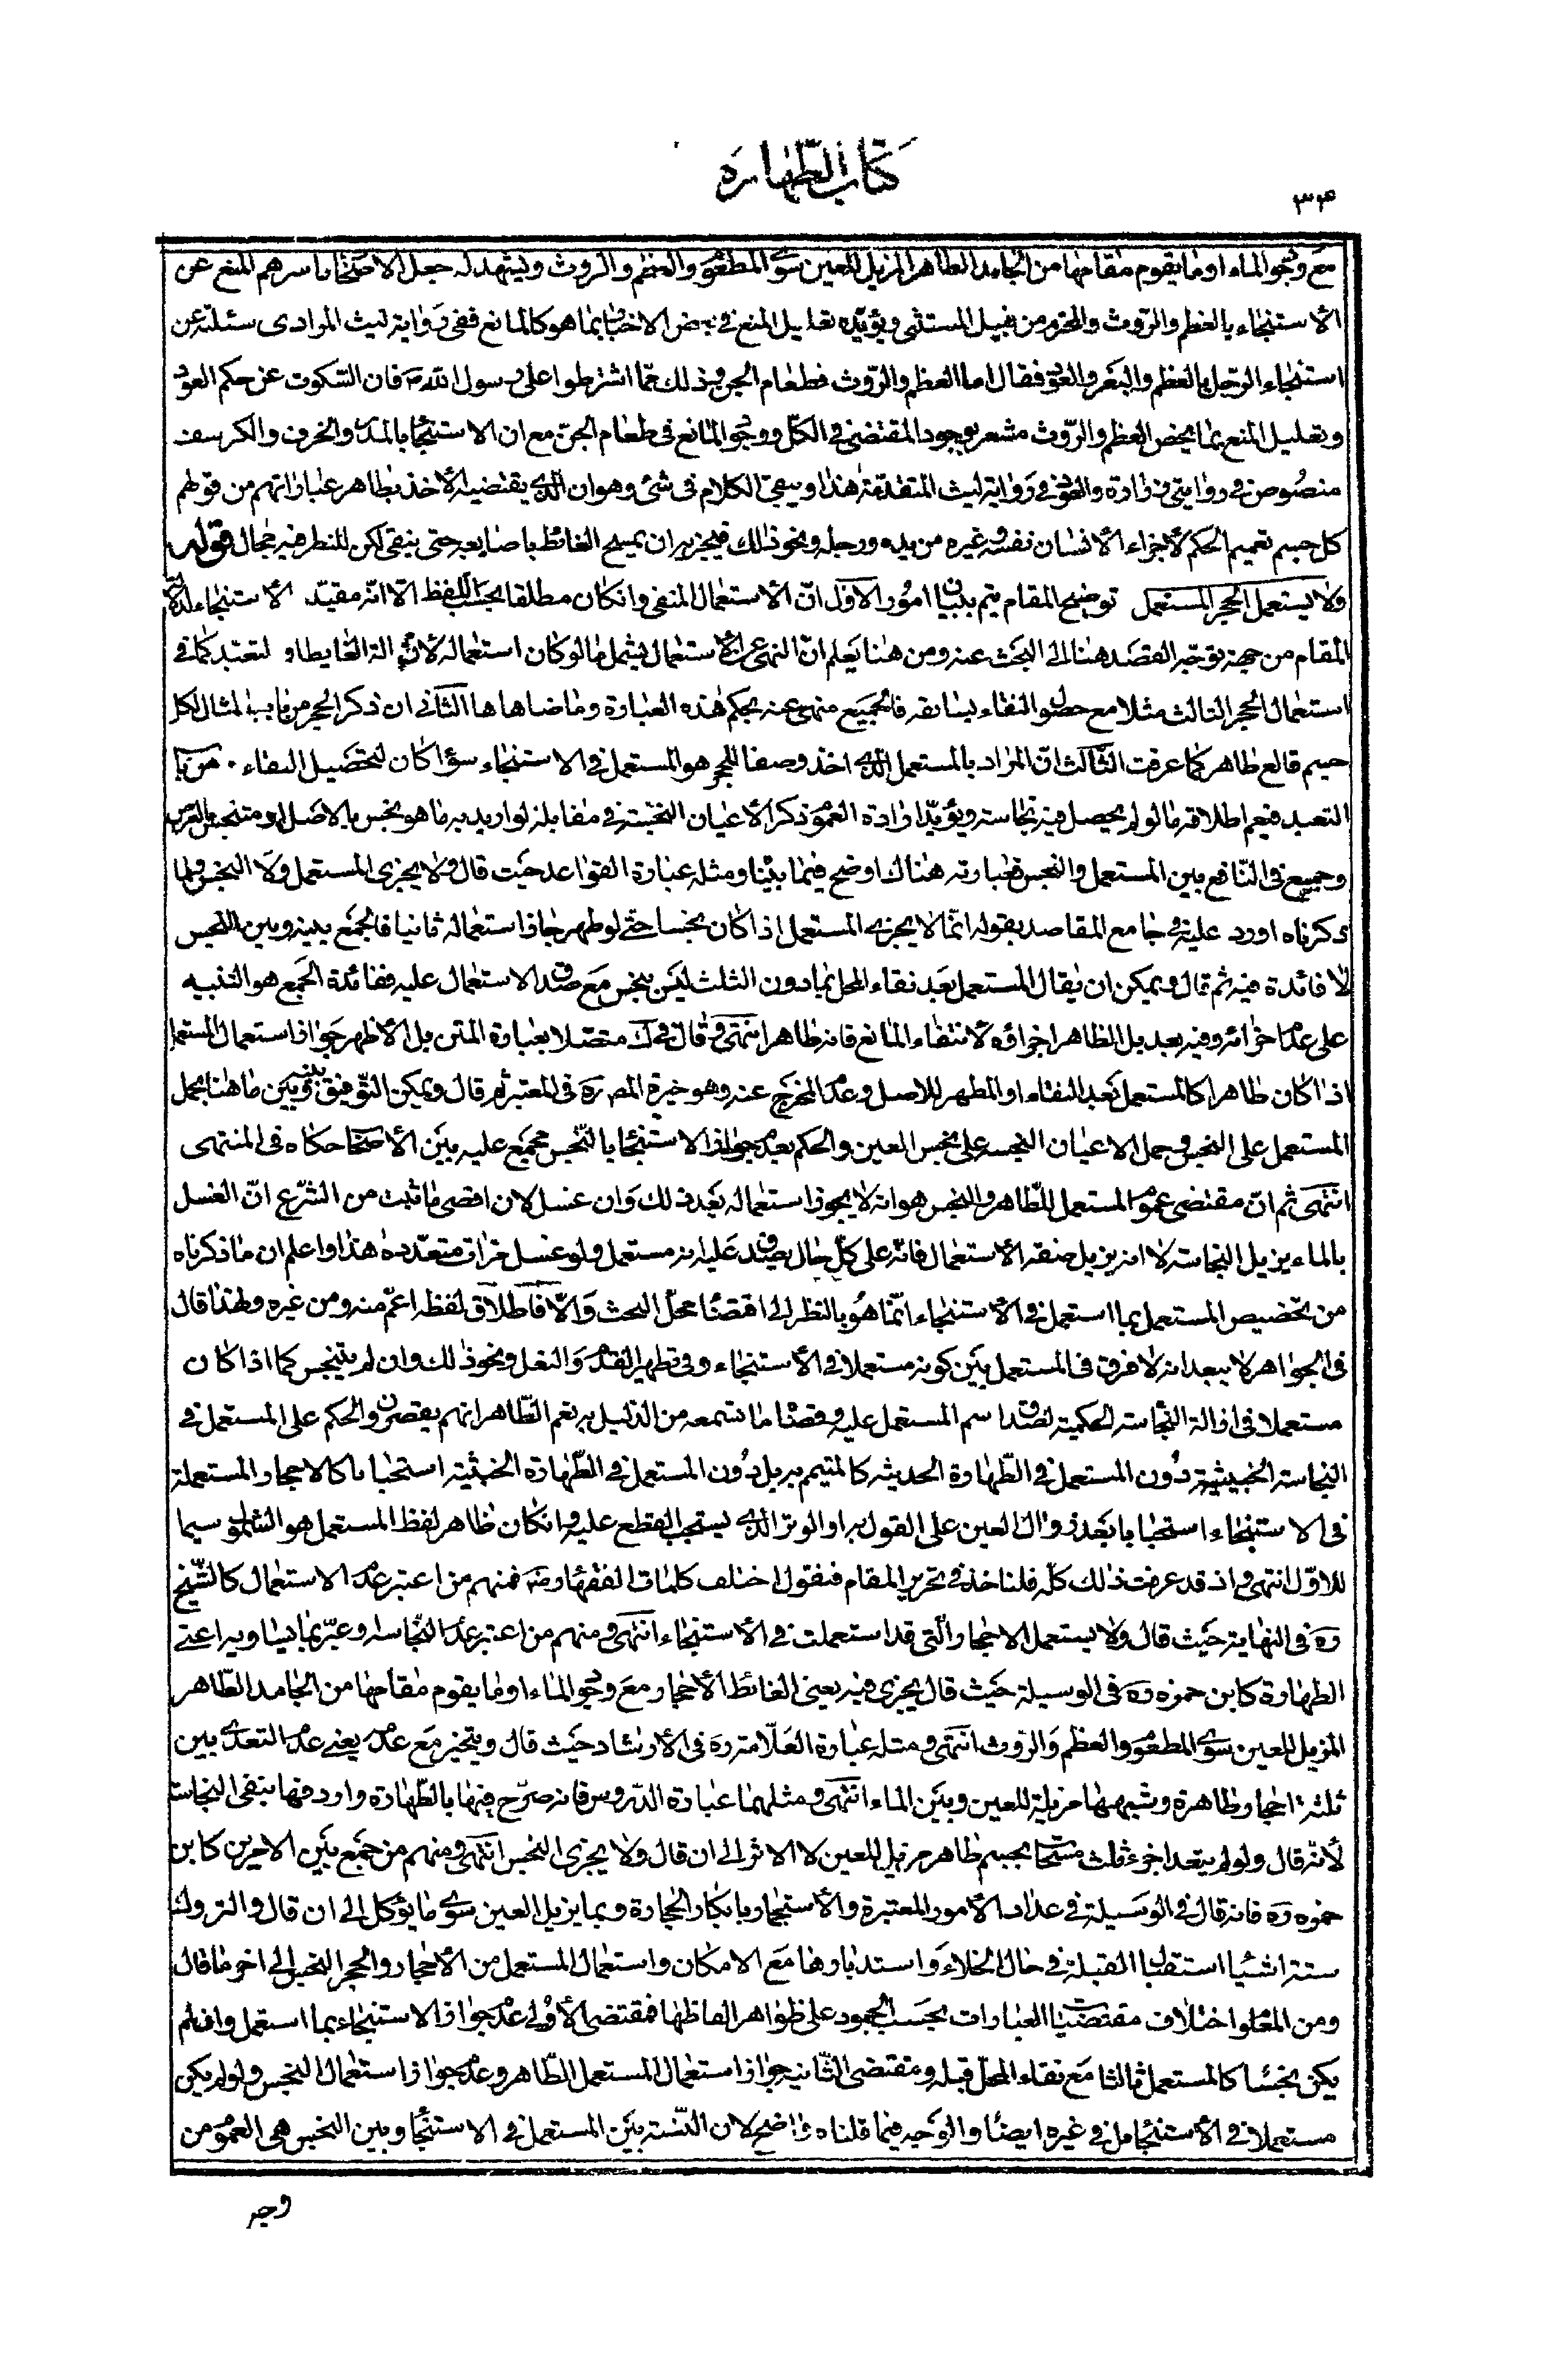 كتاب الطهارة
٣٤
مع وجود الماء او ما يقوم مقامها من الجامد الطاهر المزيل للعين سوى المطعوم والعظم والروث ويشهد له جعل الاصحاب باسرهم المنع عن
الاستنجاء بالعظم والروث والمحترم من قبيل المستثنى ويؤيده تعليل المنع في بعض الاخبار بما هو كالمانع ففي رواية ليث المرادى سئلته عن
استنجاء الرجل بالعظم والبعر والعود فقال اما العظم والروث فطعام الجن وذلك مما اشترطوا على رسول الله ص فان السكوت عن حكم العود
وتعليل المنع بما يخص العظم والروث مشعر بوجود المقتضى في الكل ووجود المانع في طعام الجن مع ان الاستنجاء بالمدر والخرق والكرسف
منصوص في روايتى زرارة والعود في رواية ليث المتقدمة هذا ويبقى الكلام في شئ وهو ان الذى يقتضيه الاخذ بظاهر عباراتهم من قولهم
كل جسم تعميم الحكم لاجزاء الانسان نفسه وغيره من يده ورجله ونحو ذلك فيجزيه ان يمسح الغائط باصابعه حتى ينقى لكن للنظر فيه مجال قوله
ولا يستعمل الحجر المستعمل توضيح المقام يتم ببيان امور الاول ان الاستعمال المنفى وان كان مطلقا بحسب اللفظ الا انه مقيد الاستنجاء لدلالة
المقام من جهة توجه القصد هنا الى البحث عنه ومن هنا يعلم ان النهى عن الاستعمال يشمل ما لو كان استعماله لازالة الغايط او لتعبد كما في
استعمال الحجر الثالث مثلا مع حصول النقاء بسابقه فالجميع منهى عنه بحكم هذه العبارة وما ضاهاها الثاني ان ذكر الحجر من باب المثال لكل
جسم قالع طاهر كما عرفت الثالث ان المراد بالمستعمل الذى اخذ وصفا للحجر هو المستعمل في الاستنجاء سواء كان لتحصيل النقاء او من باب
التعبد فيعم اطلاقه ما لو لم يحصل فيه نجاسته ويؤيد ارادة العموم ذكر الاعيان النجسة في مقابله لو اريد به ما هو نجس بالاصل او متنجس بالعرض
وجميع في النافع بين المستعمل والنجس فعبارته هناك اوضح فيما بينا ومثله عبارة القواعد حيث قال ولا يجزى المستعمل ولا النجس ولما
ذكرناه اورد عليه في جامع المقاصد بقوله انما لا يجزى المستعمل اذا كان نجسا حتى لو طهر جاز استعماله ثانيا فالجمع بينه وبين النجس
لا فائدة فيه ثم قال ويمكن ان يقال المستعمل بعد نقاء المحل بما دون الثلث ليس بنجس مع صدق الاستعمال عليه ففائدة الجمع هو التنبيه
على عدم اجزائه وفيه بعد بل الظاهر اجزاؤه لانتفاء المانع فانه طاهر انتهى وقال في ك متصلا بعبارة المتن بل الاظهر جواز استعمال المستعمل
اذا كان طاهرا كالمستعمل بعد النقاء او المطهر للاصل وعدم المخرج عنه وهو خيرة المص ره في المعتبر ثم قال ويمكن التوفيق بينه وبين ما هنا بحمل
المستعمل على النجس وحمل الاعيان النجسه على نجس العين والحكم بعدم جواز الاستنجاء بالنجس مجمع عليه بين الاصحاب حكاه في المنتهى
انتهى ثم ان مقتضى عموم المستعمل للطاهر والنجس هو انه لا يجوز استعماله بعد ذلك وان غسل لان اقصى ما ثبت من الشرع ان الغسل
بالماء يزيل النجاسة لا انه يزيل صفة الاستعمال فانه على كل حال يصدق عليه انه مستعمل ولو غسل مرات متعددة هذا واعلم ان ما ذكرناه
من تخصيص المستعمل بما استعمل في الاستنجاء انما هو بالنظر الى اقتضاء محل البحث والا فاطلاق لفظه اعم منه ومن غيره ولهذا قال
في الجواهر لا يبعد انه لا فرق في المستعمل بين كونه مستعملا في الاستنجاء وفي تطهير القدم والنعل ونحو ذلك وان لم يتنجس كما اذا كان
مستعملا في ازالة النجاسة الحكمية لصدق اسم المستعمل عليه وقضاء ما تسمعه من الدليل به نعم الظاهر انهم يقصرون الحكم على المستعمل في
النجاسة الخبيثية دون المستعمل في الطهارة الحدثيه كالمتيمم به بل دون المستعمل في الطهارة الخبثية استحبابا كالاحجار المستعملة
في الاستنجاء استحبابا بعد زوال العين على القول به او الوتر الذى يستحب القطع عليه وان كان ظاهر لفظ المستعمل هو الشمول سيما
للاول انتهى واذ قد عرفت ذلك كله فلناخذ في تحرير المقام فنقول اختلف كلمات الفقهاء رض فمنهم من اعتبر عدم الاستعمال كالشيخ
ره في النهاية حيث قال ولا يستعمل الاحجار التى قد استعملت في الاستنجاء انتهى ومنهم من اعتبر عدم النجاسة او عبر بما يساويه اعنى
الطهارة كابن حمزه ره في الوسيلة حيث قال يجزى فيه يعنى الغائط الاحجار مع وجود الماء او ما يقوم مقامها من الجامد الطاهر
المزيل للعين سوى المطعوم والعظم والروث انتهى ومثله عبارة العلامة ره في الارشاد حيث قال ويتخير مع عدمه يعنى عدم التعدى بين
ثلثة احجار طاهرة وشبهها مزيلة للعين وبين الماء انتهى ومثلهما عبارة الدروس فانه صرح فيها بالطهارة واردفها بنفى النجاسة
لانه قال ولو لم يتعد اجزء ثلث مسحات بجسم طاهر مزيل للعين لا الاثر الى ان قال ولا يجزى النجس انتهى ومنهم من جمع بين الامرين كابن
حمزه ره فانه قال في الوسيلة في عداد الامور المعتبرة والاستجمار بابكار الحجارة وبما يزيل العين سوى ما يؤكل الى ان قال والتروك
ستة اشياء استقبال القبلة في حال الخلاء واستدبارها مع الامكان واستعمال المستعمل من الاحجار والحجر النجس الى اخر ما قال
ومن المعلوم اختلاف مقتضيات العبارات بحسب الجمود على ظواهر الفاظها فمقتضى الاولى عدم جواز الاستنجاء بما استعمل وان لم
يكن نجسا كالمستعمل ثالثا مع نقاء المحل قبله ومقتضى الثانيه جواز استعمال المستعمل الطاهر وعدم جواز استعمال النجس ولو لم يكن
مستعملا في الاستنجاء بل في غيره ايضا والوجه فيما قلناه واضح لان النسبة بين المستعمل في الاستنجاء وبين النجس هى العموم من
وجه